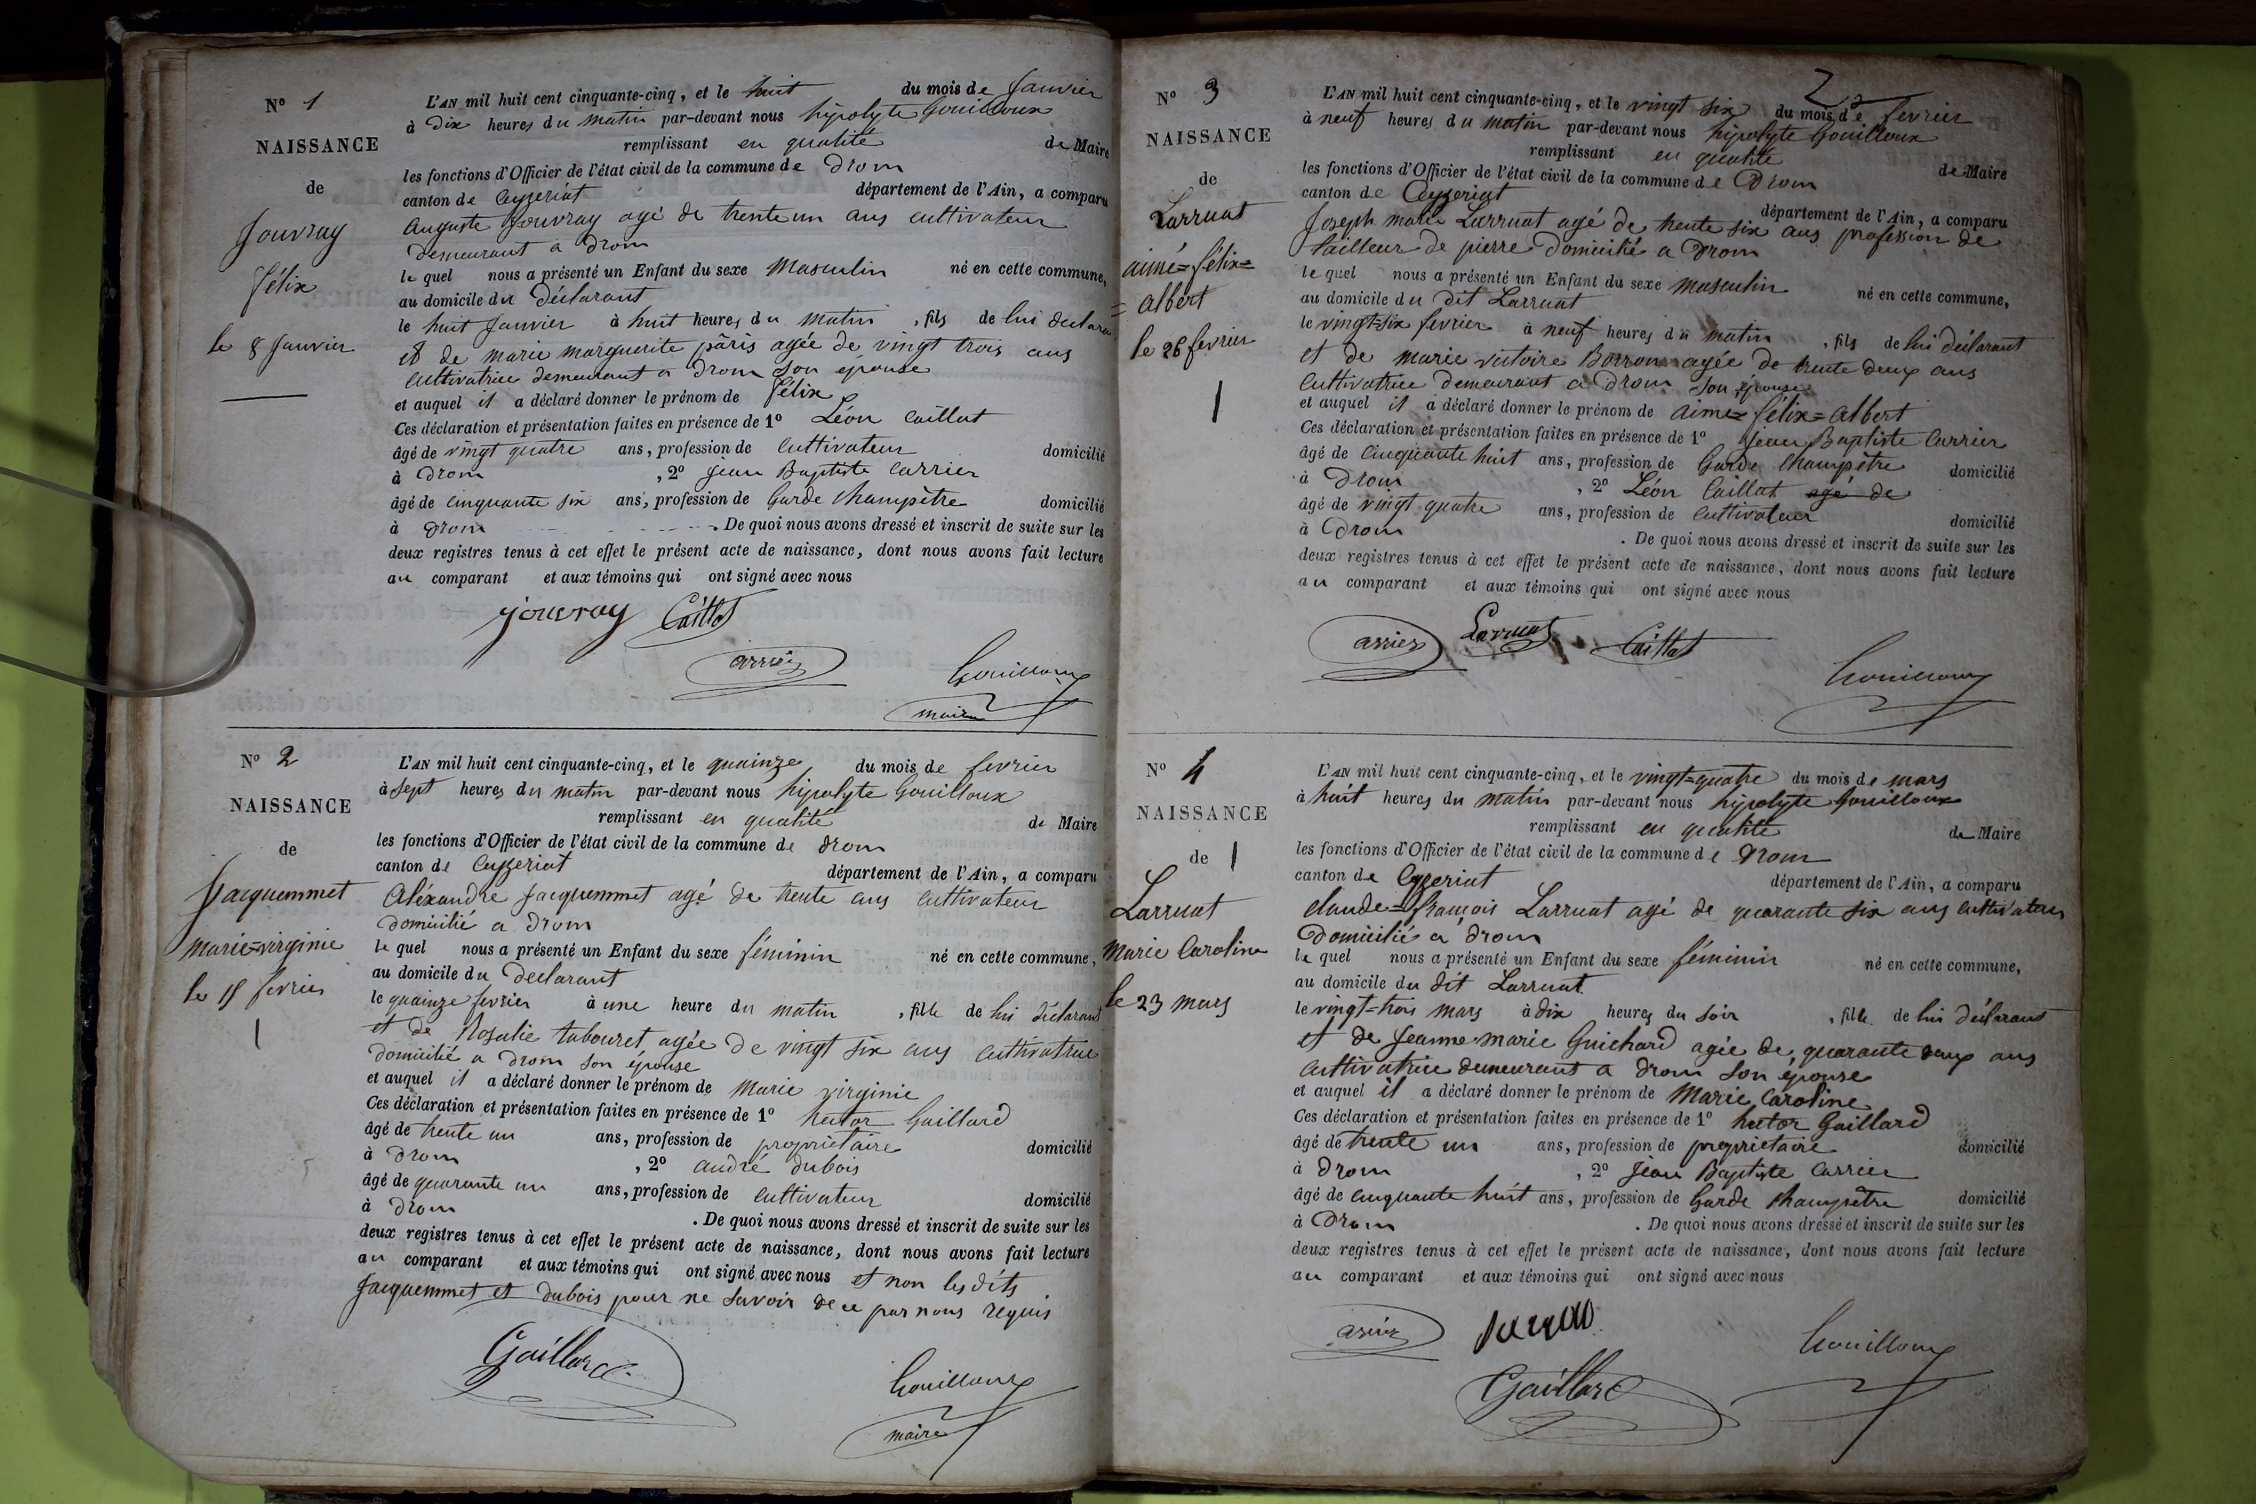 N° 1
NAISSANCE
de
Jouvray
félix
le 8 Janvier
L'AN mil huit cent cinquante-cinq, et le huit du mois de Janvier
à dix heures du matin par-devant nous hipolyte Gouilloux
remplissant en qualité de Maire
les fonctions d'Officier de l'état civil de la commune de Drom
canton de Ceyzeriat département de l'Ain, a comparu
auguste Jouvray agé de trente un ans cultivateur
demeurant a Drom
le quel nous a présenté un Enfant du sexe Masculin né en cette commune,
au domicile du Déclarant
le huit Janvier à huit heures du matin, fils de lui declarant
et de marie marguerite pâris agée de vingt trois ans
cultivatrice demeurant a Drom Son épouse
et auquel il a déclaré donner le prénom de félix
Ces déclaration et présentation faites en présence de 1° Léon Caillat
âgé de vingt quatre ans, profession de cultivateur domicilié
à Drom, 2° Jean Baptiste Carrier
âgé de cinquante six ans, profession de Garde Champêtre domicilié
à Drom. De quoi nous avons dressé et inscrit de suite sur les
deux registres tenus à cet effet le présent acte de naissance, dont nous avons fait lecture
au comparant et aux témoins qui ont signé avec nous
jouvray Caillat
arrier
Gouilloux
maire
N° 2
NAISSANCE
de
Jacquemmet
marie=virginie
le 15 fevrier
L'AN mil huit cent cinquante-cinq, et le quainze du mois de fevrier
à sept heures du matin par-devant nous hipolyte Gouilloux
remplissant en qualité de Maire
les fonctions d'Officier de l'état civil de la commune de Drom
canton de Ceyzeriat département de l'Ain, a comparu
Aléxandre Jacquemmet agé de trente ans cultivateur
domicilié a Drom
le quel nous a présenté un Enfant du sexe féminin né en cette commune,
au domicile du declarant
le quainze fevrier à une heure du matin, fille de lui déclarant
et de Rosalie tabouret agée de vingt six ans cultivatrice
domicilié a Drom son épouse
et auquel il a déclaré donner le prénom de Marie virginie
Ces déclaration et présentation faites en présence de 1° hector Gaillard
âgé de trente un ans, profession de propriétaire domicilié
à Drom, 2° andré dubois
âgé de quarante un ans, profession de cultivateur domicilié
à Drom. De quoi nous avons dressé et inscrit de suite sur les
deux registres tenus à cet effet le présent acte de naissance, dont nous avons fait lecture
au comparant et aux témoins qui ont signé avec nous et non les dits
Jacquemmet et dubois pour ne Savoir de ce par nous requis
Gaillard
Gouilloux
maire
2
N° 3
NAISSANCE
de
Larruat
aimé=félix=
=albert
le 26 fevrier
L'AN mil huit cent cinquante-cinq, et le vingt six du mois de fevrier
à neuf heures du matin par-devant nous hipolyte Gouilloux
remplissant en qualité de Maire
les fonctions d'Officier de l'état civil de la commune de Drom
canton de Ceyzeriat département de l'Ain, a comparu
Joseph marie Larruat agé de trente six ans profession de
tailleur de pierre domicilié a Drom
le quel nous a présenté un Enfant du sexe masculin né en cette commune,
au domicile du dit Larruat
le vingt=six fevrier à neuf heures du matin, fils de lui déclarant
et de marie victoire Borron agée de trente deux ans
cultivatrice demeurant a Drom son épouse
et auquel il a déclaré donner le prénom de aimé=félix=albert
Ces déclaration et présentation faites en présence de 1° Jean Baptiste Carrier
âgé de cinquante huit ans, profession de Garde Champêtre domicilié
à Drom, 2° Léon Caillat agé de
âgé de vingt quatre ans, profession de cultivateur domicilié
à Drom. De quoi nous avons dressé et inscrit de suite sur les
deux registres tenus à cet effet le présent acte de naissance, dont nous avons fait lecture
au comparant et aux témoins qui ont signé avec nous
arrier Larruat Caillat
Gouilloux
N° 4
NAISSANCE
de
Larruat
Marie Caroline
le 23 mars
L'AN mil huit cent cinquante-cinq, et le vingt=quatre du mois de mars
à huit heures du matin par-devant nous hipolyte Gouilloux
remplissant en qualité de Maire
les fonctions d'Officier de l'état civil de la commune de Drom
canton de Cyzeriat département de l'Ain, a comparu
claude=françois Larruat agé de quarante six ans cultivateur
Domicilié a Drom
le quel nous a présenté un Enfant du sexe féminin né en cette commune,
au domicile du dit Larruat
le vingt=trois mars à dix heures du soir, fille de lui déclarant
et de Jeanne-marie Guichard agée de quarante deux ans
cultivatrice demeurant a Drom Son épouse
et auquel il a déclaré donner le prénom de Marie Caroline
Ces déclaration et présentation faites en présence de 1° hector Gaillard
âgé de trente un ans, profession de propriétaire domicilié
à Drom, 2° Jean Baptiste Carrier
âgé de cinquante huit ans, profession de Garde Champêtre domicilié
à Drom. De quoi nous avons dressé et inscrit de suite sur les
deux registres tenus à cet effet le présent acte de naissance, dont nous avons fait lecture
au comparant et aux témoins qui ont signé avec nous
arrier
Gouilloux
Gaillard